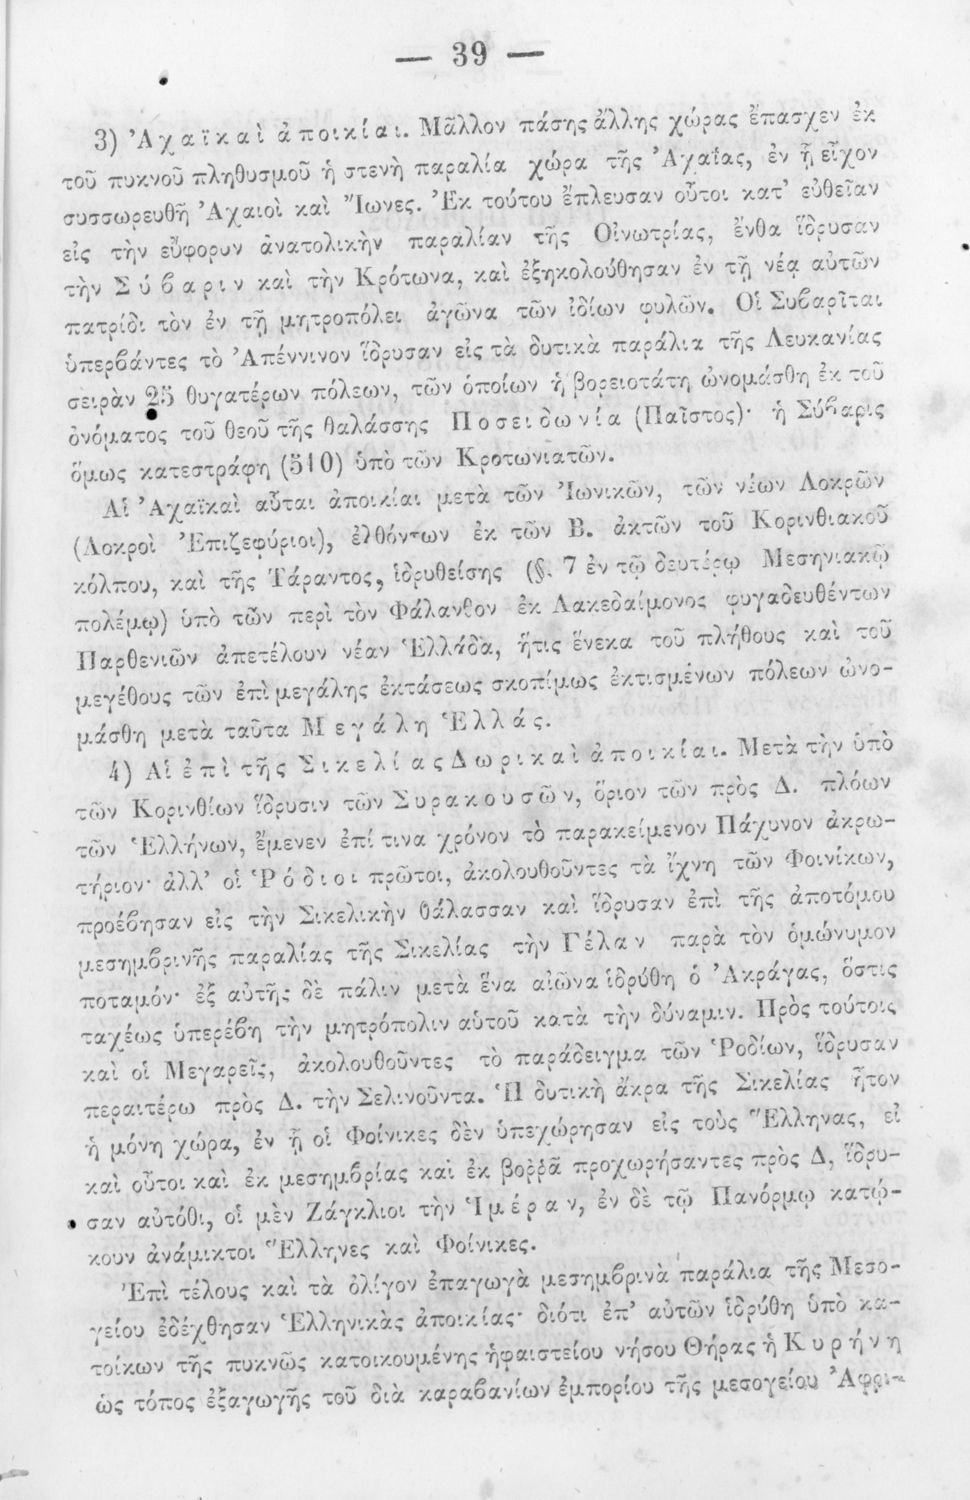 — 39 —
3) Ἀχαϊκαὶ ἀποικίαι. Μᾶλλον πάσης ἄλλης χώρας ἔπασχεν ἐκ
τοῦ πυκνοῦ πληθυσμοῦ ἡ στενὴ παραλία χώρα τῆς Ἀχαΐας, ἐν ᾗ εἶχον
συσσωρευθῆ Ἀχαιοὶ καὶ Ἴωνες. Ἐκ τούτου ἔπλευσαν οὗτοι κατ’ εὐθεῖαν
εἰς τὴν εὔφορυν ἀνατολικὴν παραλίαν τῆς Οἰνωτρίας, ἔνθα ἵδρυσαν
τὴν Σύβαριν καὶ τὴν Κρότωνα, καὶ ἐξηκολούθησαν ἐν τῇ νέᾳ αὐτῶν
πατρίδι τὸν ἐν τῇ μητροπόλει ἀγῶνα τῶν ἰδίων φυλῶν. Οἱ Συβαρῖται
ὑπερβάντες τὸ Ἀπέννινον ἵδρυσαν εἰς τὰ δυτικὰ παράλια τῆς Λευκανίας
σειρὰν 25 θυγατέρων πόλεων, τῶν ὁποίων ἡ βορειοτάτη ὠνομάσθη ἐκ τοῦ
ὀνόματος τοῦ θεοῦ τῆς θαλάσσης Ποσειδωνία (Παῖστος)· ἡ Σύβαρις
ὅμως κατεστράφη (510) ὑπὸ τῶν Κροτωνιατῶν.
Αἱ Ἀχαϊκαὶ αὗται ἀποικίαι μετὰ τῶν Ἰωνικῶν, τῶν νέων Λοκρῶν
(Λοκροὶ Ἐπιζεφύριοι), ἐλθόντων ἐκ τῶν Β. ἀκτῶν τοῦ Κορινθιακοῦ
κόλπου, καὶ τῆς Τάραντος, ἱδρυθείσης (§. 7 ἐν τῷ δευτέρῳ Μεσηνιακῷ
πολέμῳ) ὑπὸ τῶν περὶ τὸν Φάλανθον ἐκ Λακεδαίμονος φυγαδευθέντων
Παρθενιῶν ἀπετέλουν νέαν Ἑλλάδα, ἥτις ἕνεκα τοῦ πλήθους καὶ τοῦ
μεγέθους τῶν ἐπὶ μεγάλης ἐκτάσεως σκοπίμως ἐκτισμένων πόλεων ὠνο-
μάσθη μετὰ ταῦτα Μεγάλη Ἑλλάς.
4) Αἱ ἐπὶ τῆς Σικελίας Δωρικαὶ ἀποικίαι. Μετὰ τὴν ὑπὸ
τῶν Κορινθίων ἵδρυσιν τῶν Συρακουσῶν, ὅριον τῶν πρὸς Δ. πλόων
τῶν Ἑλλήνων, ἔμενεν ἐπί τινα χρόνον τὸ παρακείμενον Πάχυνον ἀκρω-
τήριον· ἀλλ’ οἱ Ῥόδιοι πρῶτοι, ἀκολουθοῦντες τὰ ἴχνη τῶν Φοινίκων,
προέβησαν εἰς τὴν Σικελικὴν θάλασσαν καὶ ἵδρυσαν ἐπὶ τῆς ἀποτόμου
μεσημβρινῆς παραλίας τῆς Σικελίας τὴν Γέλαν παρὰ τὸν ὁμώνυμον
ποταμόν· ἐξ αὐτῆς δὲ πάλιν μετὰ ἕνα αἰῶνα ἱδρύθη ὁ Ἀκράγας, ὅστις
ταχέως ὑπερέβη τὴν μητρόπολιν αὑτοῦ κατὰ τὴν δύναμιν. Πρὸς τούτοις
καὶ οἱ Μεγαρεῖς, ἀκολουθοῦντες τὸ παράδειγμα τῶν Ῥοδίων, ἵδρυσαν
περαιτέρω πρὸς Δ. τὴν Σελινοῦντα. Ἡ δυτικὴ ἄκρα τῆς Σικελίας ἦτον
ἡ μόνη χώρα, ἐν ᾗ οἱ Φοίνικες δὲν ὑπεχώρησαν εἰς τοὺς Ἕλληνας, εἰ
καὶ οὗτοι καὶ ἐκ μεσημβρίας καὶ ἐκ βοῤῥᾶ προχωρήσαντες πρὸς Δ, ἵδρυ-
σαν αὐτόθι, οἱ μὲν Ζάγκλιοι τὴν Ἱμέραν, ἐν δὲ τῷ Πανόρμῳ κατῴ-
κουν ἀνάμικτοι Ἕλληνες καὶ Φοίνικες.
Ἐπὶ τέλους καὶ τὰ ὀλίγον ἐπαγωγὰ μεσημβρινὰ παράλια τῆς Μεσο-
γείου ἐδέχθησαν Ἑλληνικὰς ἀποικίας· διότι ἐπ’ αὐτῶν ἱδρύθη ὑπὸ κα-
τοίκων τῆς πυκνῶς κατοικουμένης ἡφαιστείου νήσου Θήρας ἡ Κυρήνη
ὡς τόπος ἐξαγωγῆς τοῦ διὰ καραβανίων ἐμπορίου τῆς μεσογείου Ἀφρι-